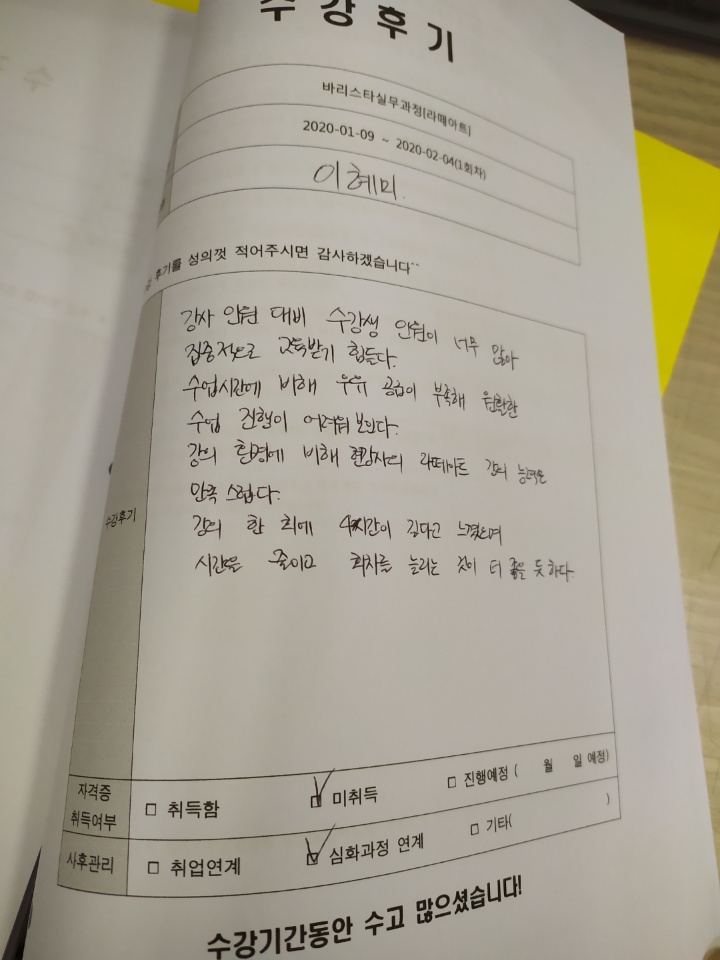 수강후기
바리스타실무과정[라떼아트]
2020-01-09 ~ 2020-02-04(1회차)
이혜미
후기를 성의껏 적어주시면 감사하겠습니다~~
강사 인원 대비 수강생 인원이 너무 많아
집중적으로 교육받기 힘들다.
수업시간에 비해 우유 공급이 부족해 원활한
수업 진행이 어려워 보인다.
강의 환경에 비해 현강사의 라떼아트 강의 능력은
만족스럽다.
수강후기
강의 한 회에 4시간이 길다고 느꼈으며
시간을 줄이고 회차를 늘리는 것이 더 좋을 듯하다.
자격증 취득여부 □ 취득함 ☑ 미취득 □ 진행예정 ( 월 일 예정)
사후관리 □ 취업연계 ☑ 심화과정 연계 □ 기타( )
수강기간동안 수고 많으셨습니다!